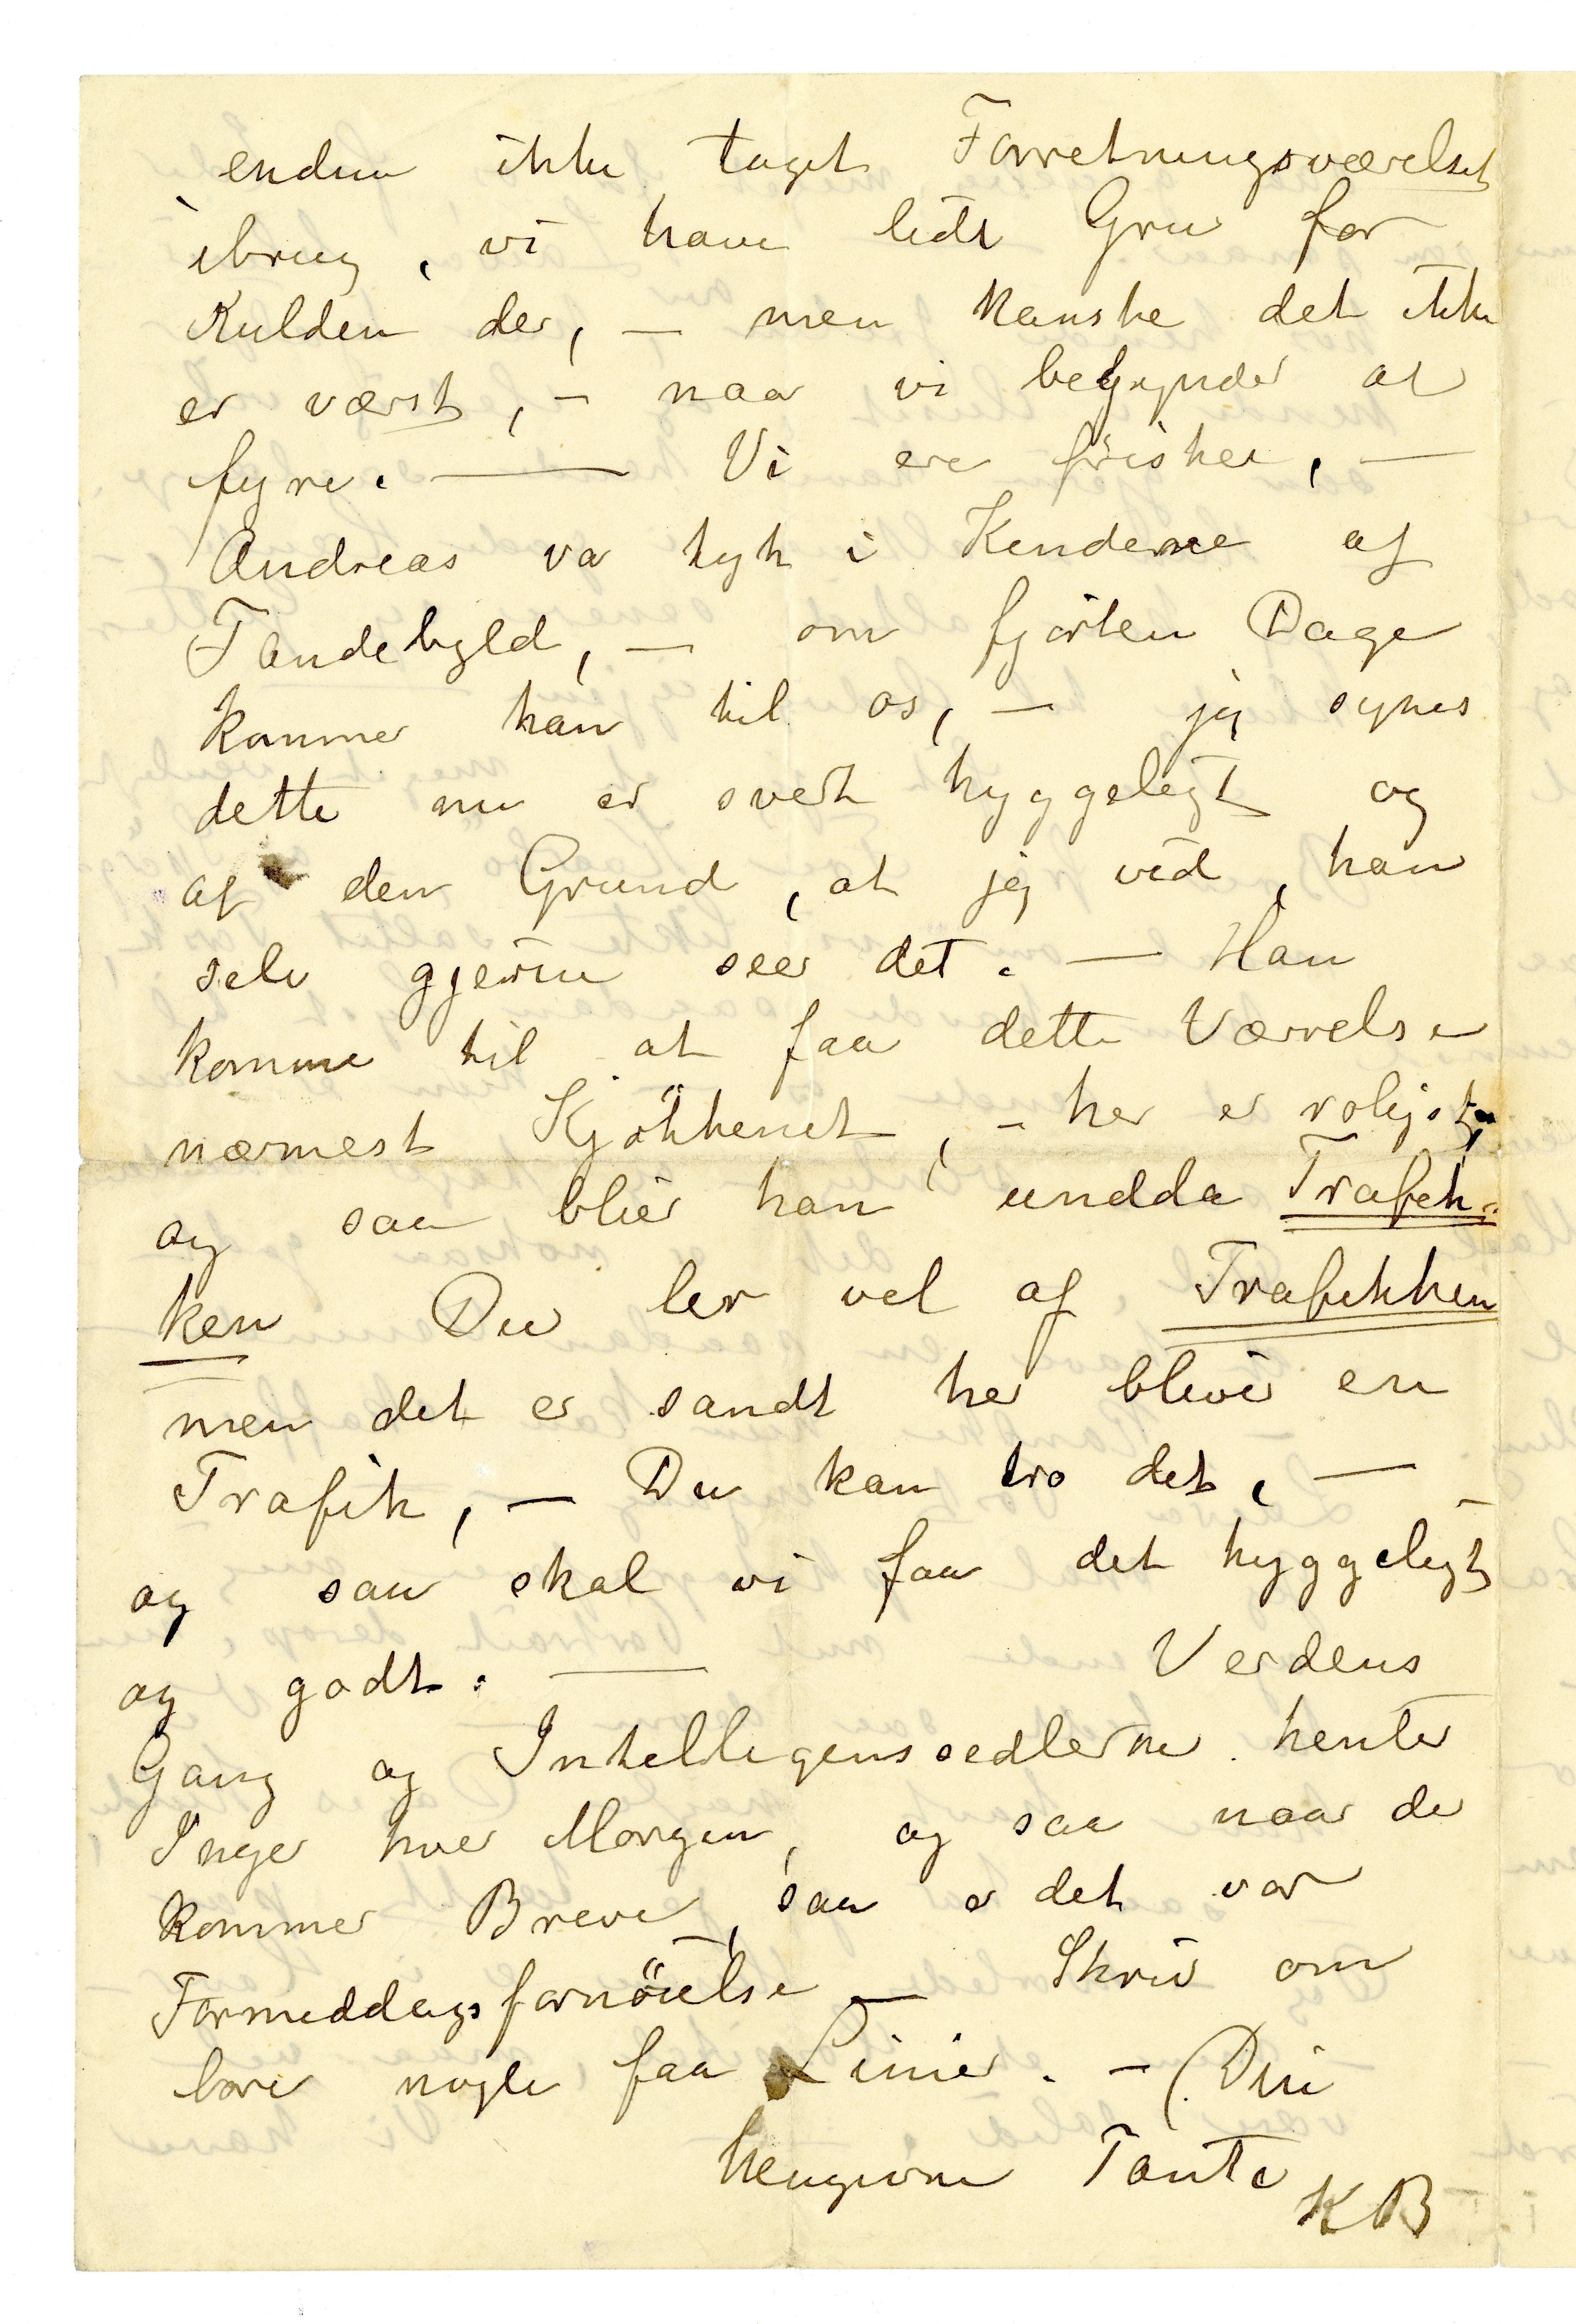 endnu ikke taget Forretningsværelset
ibrug, vi have lidt Gru for
Kulden der, — men kanske det ikke
er værst, – naar vi begynder at
fyre. — Vi ere friske, —
Andreas va tyk i Kinderne af
Tandebyld, — om fjorten Dage
kommer han til os, — jeg synes
dette nu er svært hyggeligt og
af den Grund, at jeg ved, han
selv gjerne seer det. — Han
komme til at faa dette Værrelse
nærmest Kjökkenet, – her er roligst,
og saa blier han undda Trafik-
ken Du ler vel af, Trafikken
men det er sandt her bliver en
Trafik, — Du kan tro det, —
og saa skal vi faa det hyggeligt
og godt. — Verdens
Gang og Intelligenssedlerne henter
Inger hver Morgen, og saa naar de
kommer Breve, saa er det vor
Formiddagsfornöielse — Skriv om
bare nogle faa Linier. – Din
hengivne Tante
KB